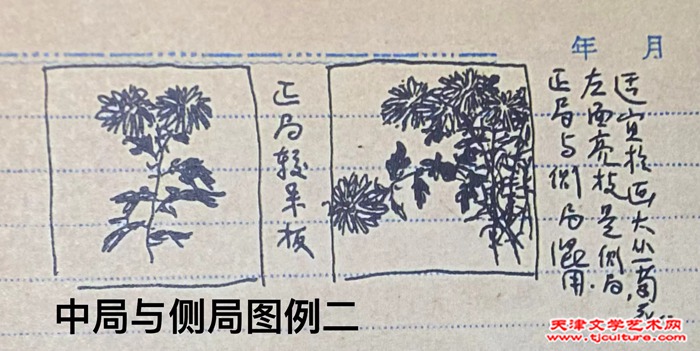 年 月
正局较呆板
适宜于画大丛菊花
左面亮枝是侧局，
正局与侧局混用.
中局与侧局图例二
天津文学艺术网
www.tjculture.com